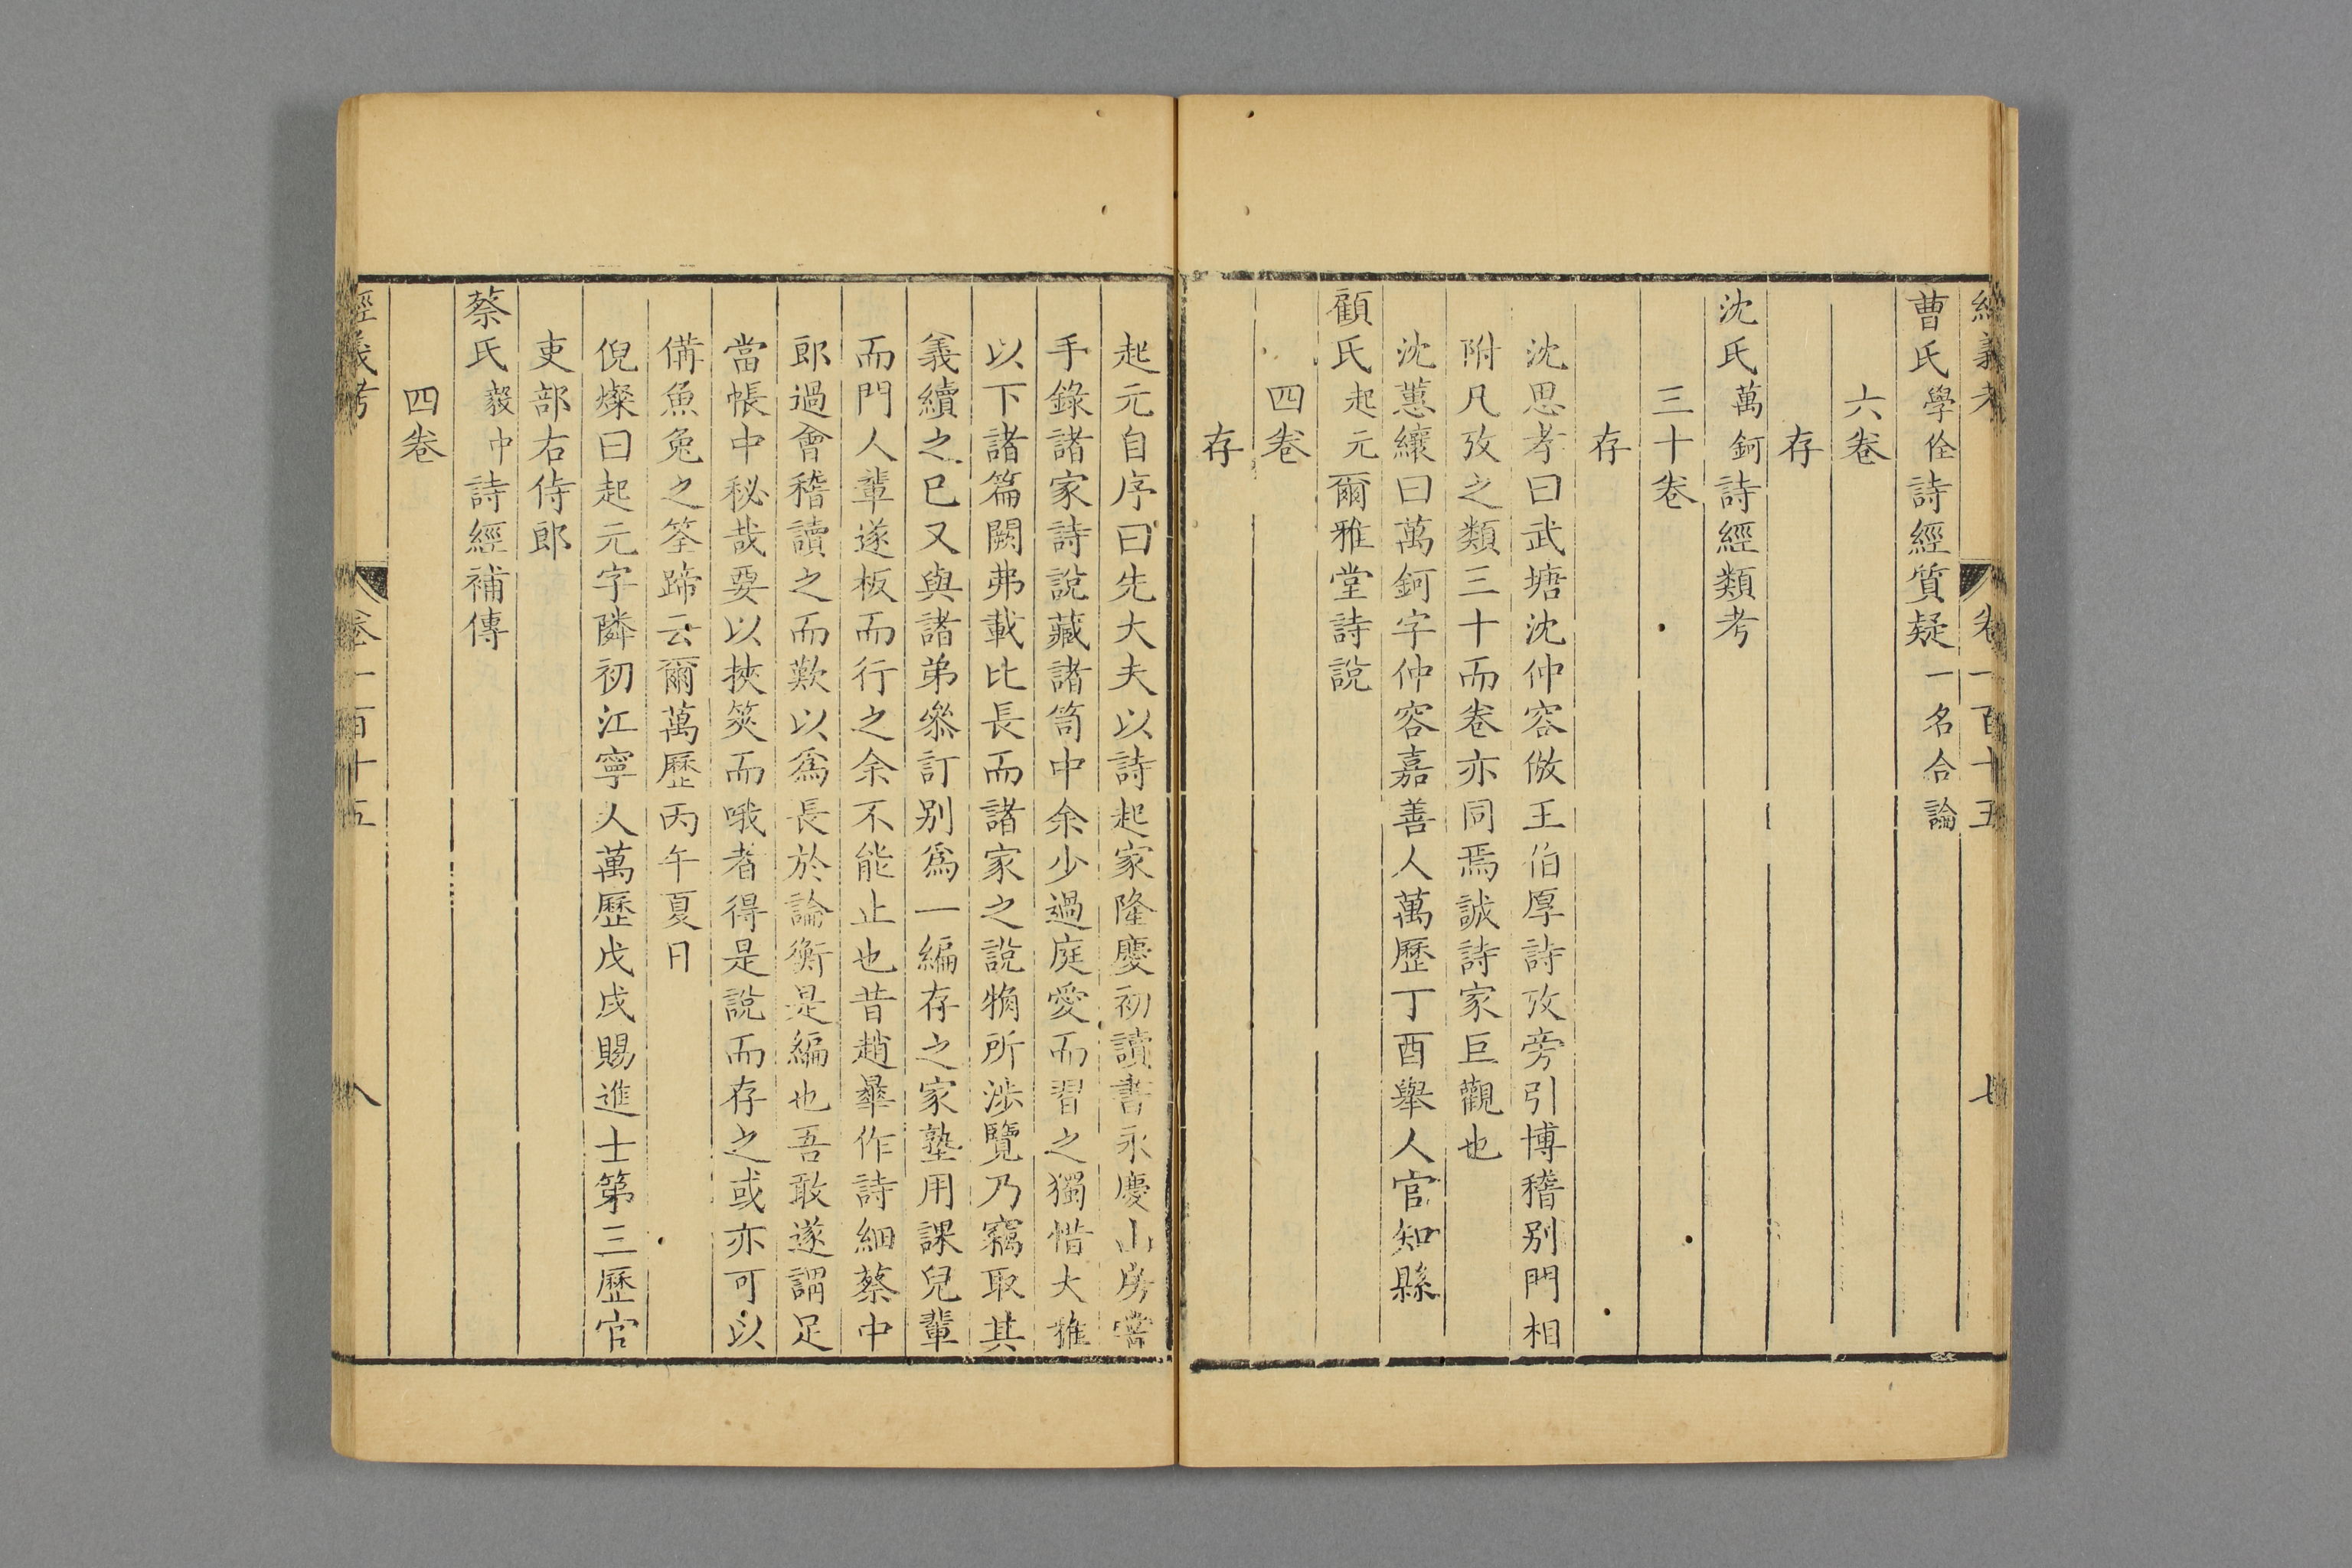 經義考 卷一百十五 七
曹氏學佺詩經質疑一名合論
六卷
存
沈氏萬鈳詩經類考
三十卷
存
沈思孝曰武塘沈仲容倣王伯厚詩攷旁引博稽别門相
附凡攷之類三十而卷亦同焉誠詩家巨觀也
沈蕙纕曰萬鈳字仲容嘉善人萬歷丁酉舉人官知縣
顧氏起元爾雅堂詩說
四卷
存
起元自序曰先大夫以詩起家隆慶初讀書永慶山房嘗
手錄諸家詩說藏諸笥中余少過庭愛而習之獨惜大雅
以下諸篇闕弗載比長而諸家之說犓所涉覽乃竊取其
義續之已又與諸弟叅訂别爲一編存之家塾用課兒輩
而門人輩遂板而行之余不能止也昔趙曅作詩細蔡中
郎過會稽讀之而歎以爲長於論衡是編也吾敢遂謂足
當帳中秘哉要以挾筴而哦者得是說而存之或亦可以
備魚兔之筌蹄云爾萬歷丙午夏日
倪燦曰起元字隣初江寧人萬歷戊戌賜進士第三歷官
吏部右侍郎
蔡氏毅中詩經補傳
四卷
經義考 卷一百十五 八